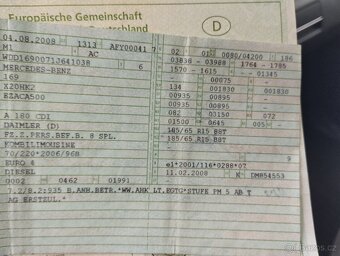 Europäische Gemeinschaft
D
04.08.2008 1313 AFY00041 7
M1 AC
WDD1690071J641038
MERCEDES-BENZ 6
169
X2DHK2
BZACA500
A 180 CDI
DAIMLER (D)
FZ.Z.PERS.BEF.B. 8 SPL.
KOMBILIMOUSINE
70/220*2006/96B
EURO 4
DIESEL
0002 0462 01991
7.2/8.2:935 B.ANH.BETR.*WW.AHK LT.EGTG*STUFE PM 5 AB T
AG ERSTZUL.*
02 01 0080/04200 186
03838 - 03988 1764 - 1785
1570 - 1615 - 01345
- 00075 - -
134 001830 001830
00935 00895 -
00935 00895 -
082 03150 072
01500 0645 005
185/65 R15 88T
185/65 R15 88T
- 9
e1*2001/116*0288*07
11.02.2008 N DM854553